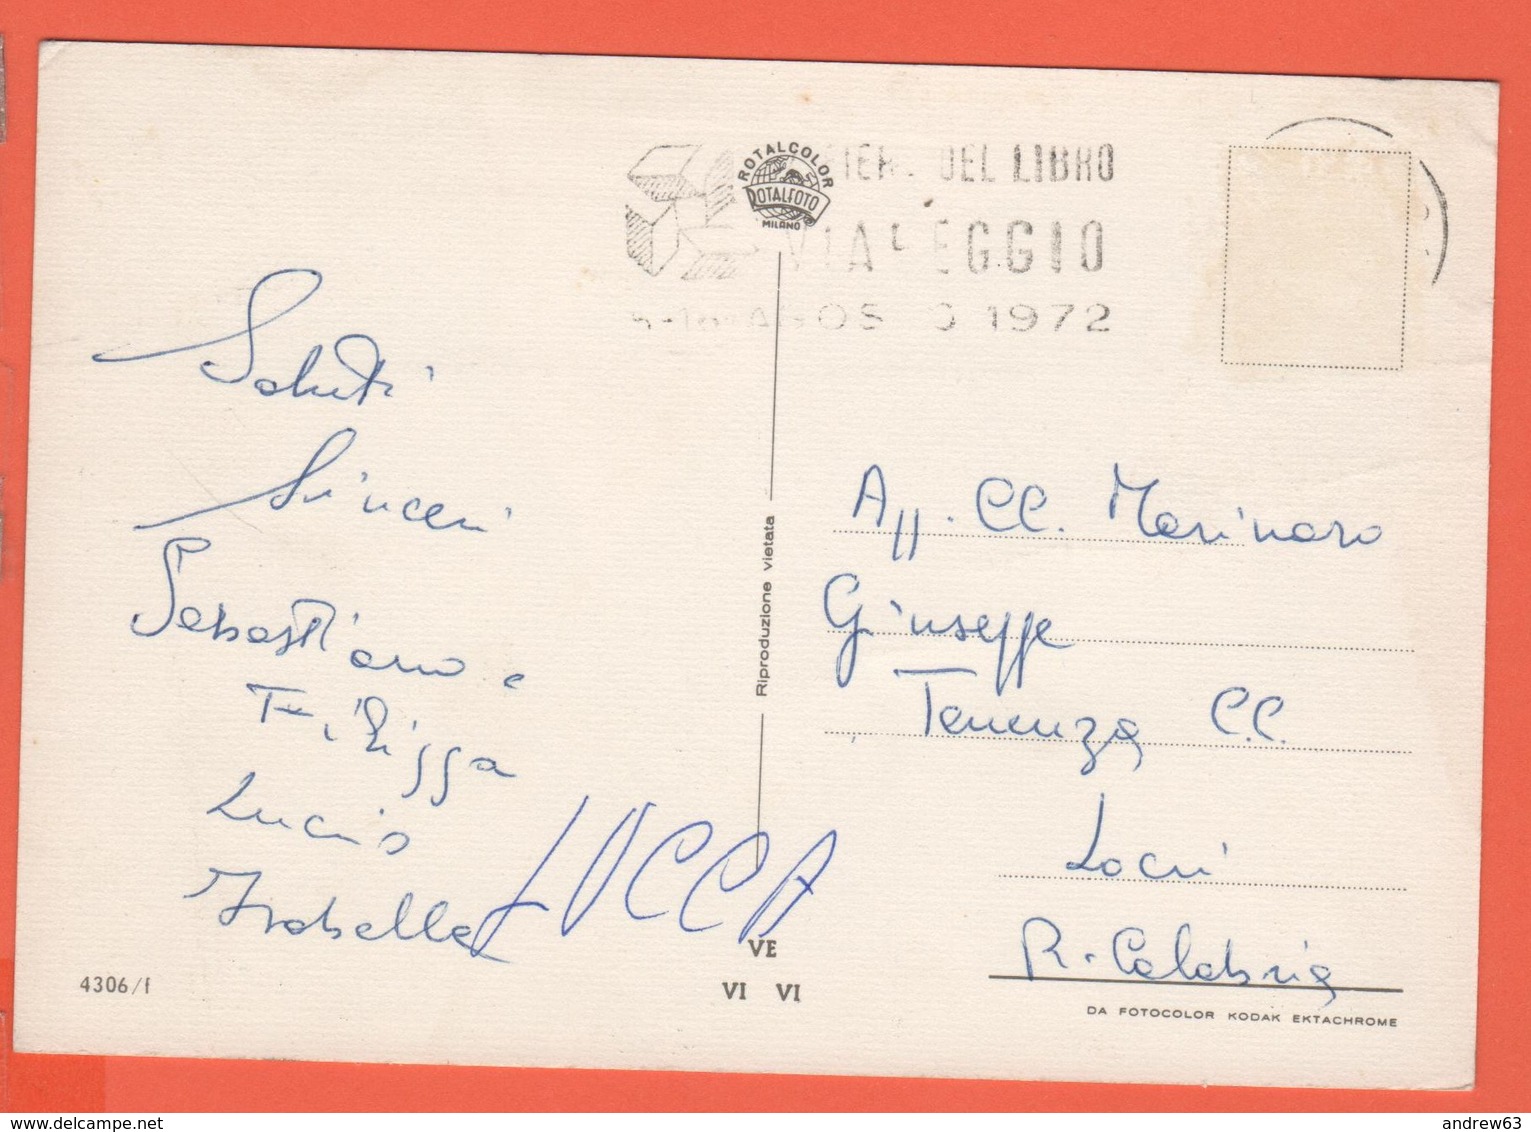 ROTALCOLOR
ROTALFOTO
MILANO
DEL LIBRO
VIAREGGIO
1972
Saluti
Sinceri
Sebastiano e
Filippa
Lucio
Isabella
LUCCA
Riproduzione vietata
App. CC. Marinaro
Giuseppe
Tenenza C.C.
Locri
R. Calabria
4306/f
VE
VI VI
DA FOTOCOLOR KODAK EKTACHROME
andrew63